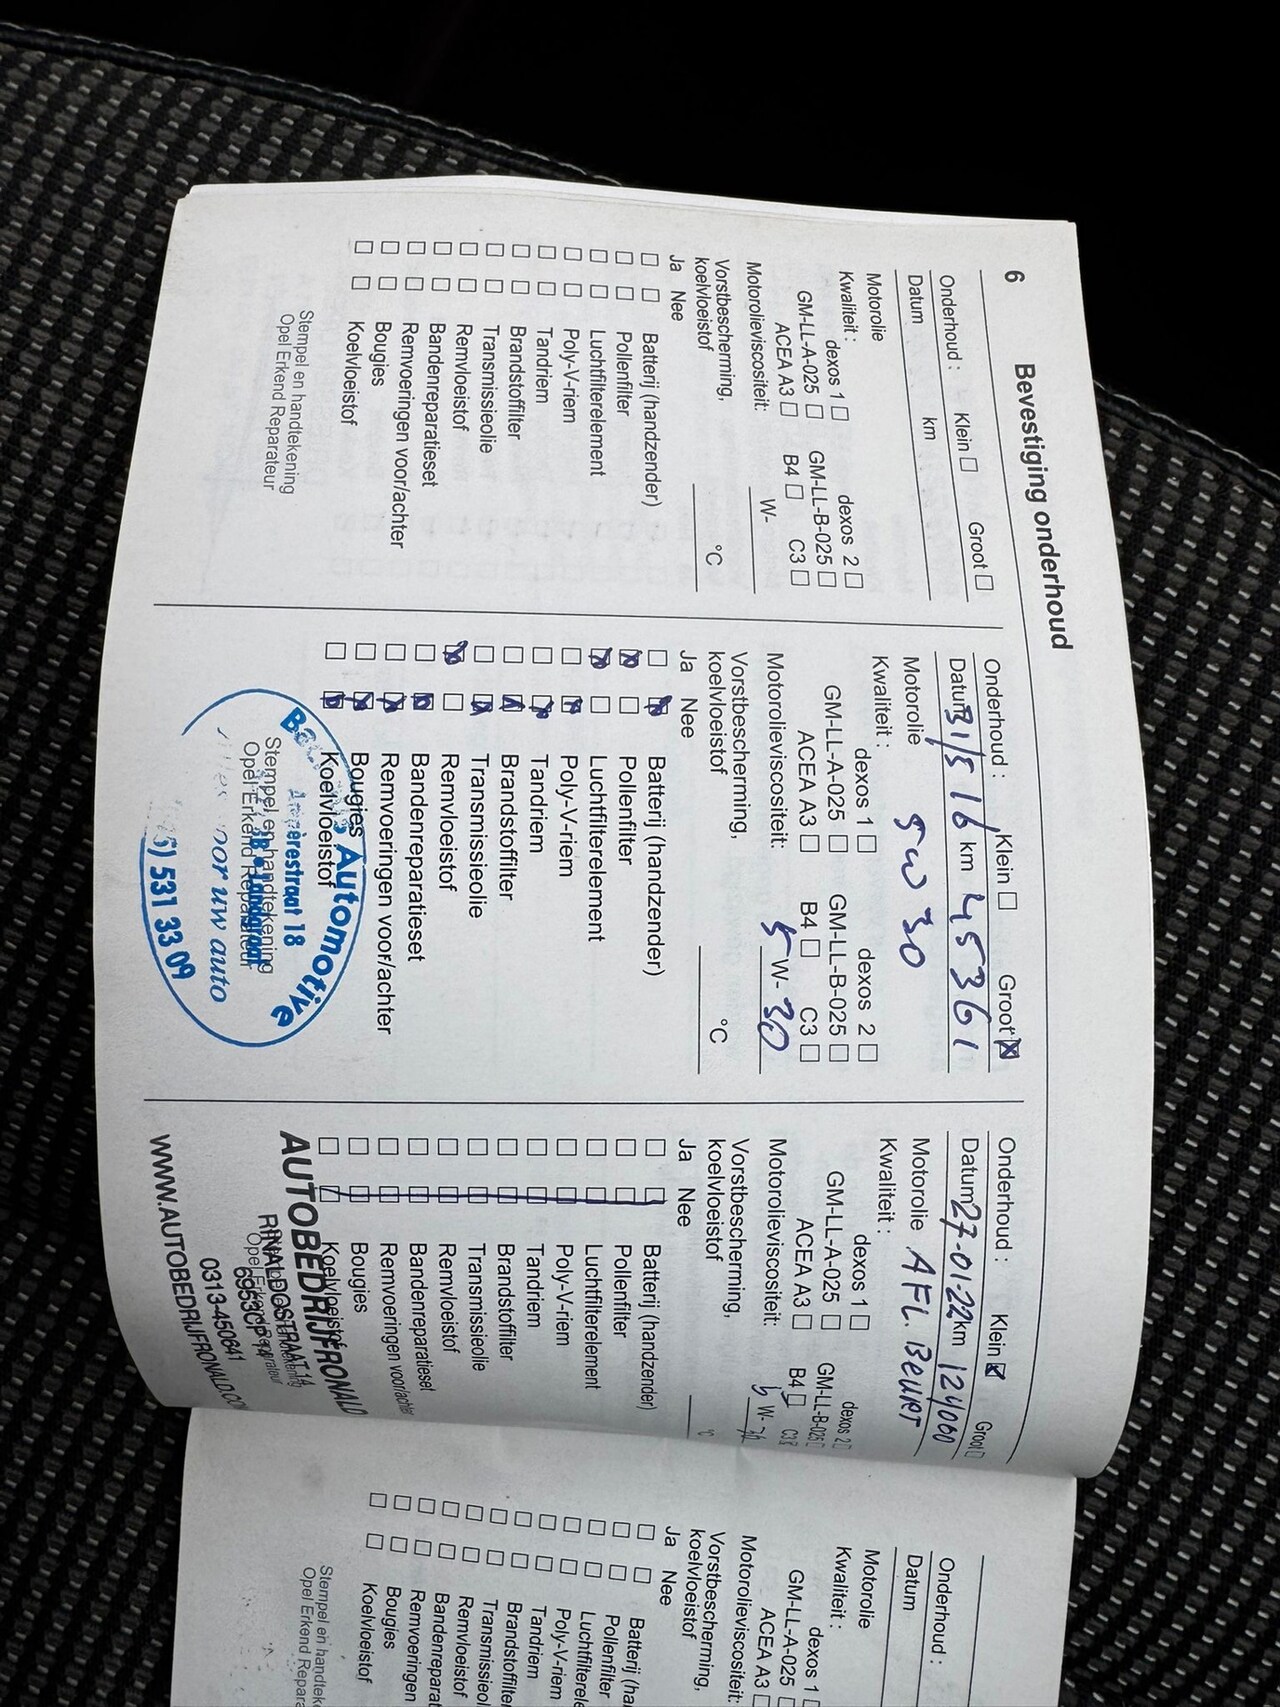 6 Bevestiging onderhoud
Onderhoud : Klein Groot
Datum km
Motorolie
Kwaliteit :
dexos 1 dexos 2
GM-LL-A-025 GM-LL-B-025
ACEA A3 B4 C3
Motorolieviscositeit: W-
Vorstbescherming,
koelvloeistof °C
Ja Nee
Batterij (handzender)
Pollenfilter
Luchtfilterelement
Poly-V-riem
Tandriem
Brandstoffilter
Transmissieolie
Remvloeistof
Bandenreparatieset
Remvoeringen voor/achter
Bougies
Koelvloeistof
Stempel en handtekening
Opel Erkend Reparateur
Onderhoud : Klein Groot
Datum 31/5 16 km 45361
Motorolie 5W30
Kwaliteit :
dexos 1 dexos 2
GM-LL-A-025 GM-LL-B-025
ACEA A3 B4 C3
Motorolieviscositeit: 5 W- 30
Vorstbescherming,
koelvloeistof °C
Ja Nee
Batterij (handzender)
Pollenfilter
Luchtfilterelement
Poly-V-riem
Tandriem
Brandstoffilter
Transmissieolie
Remvloeistof
Bandenreparatieset
Remvoeringen voor/achter
Bougies
Koelvloeistof
Automotive
18
Stempel en handtekening
Opel Erkend Reparateur
voor uw auto
531 33 09
Onderhoud : Klein Groot
Datum 27-01-22 km 124060
Motorolie AFL. BEURT
Kwaliteit :
dexos 1 dexos 2
GM-LL-A-025 GM-LL-B-025
ACEA A3 B4 C3
Motorolieviscositeit: 5 W- 30
Vorstbescherming,
koelvloeistof °C
Ja Nee
Batterij (handzender)
Pollenfilter
Luchtfilterelement
Poly-V-riem
Tandriem
Brandstoffilter
Transmissieolie
Remvloeistof
Bandenreparatieset
Remvoeringen voor/achter
Bougies
Koelvloeistof
AUTOBEDRIJFRONALD
RINALDOSTRAAT 14
6953CP
Opel Erkend Reparateur
0313-450641
WWW.AUTOBEDRIJFRONALD.CO
Onderhoud :
Datum
Motorolie
Kwaliteit :
dexos 1
GM-LL-A-025
ACEA A3
Motorolieviscositeit:
Vorstbescherming,
koelvloeistof
Ja Nee
Batterij (ha
Pollenfilter
Luchtfiltere
Poly-V-riem
Tandriem
Brandstoffilter
Transmissieol
Remvloeistof
Bandenreparat
Remvoeringen
Bougies
Koelvloeistof
Stempel en handtek
Opel Erkend Repara